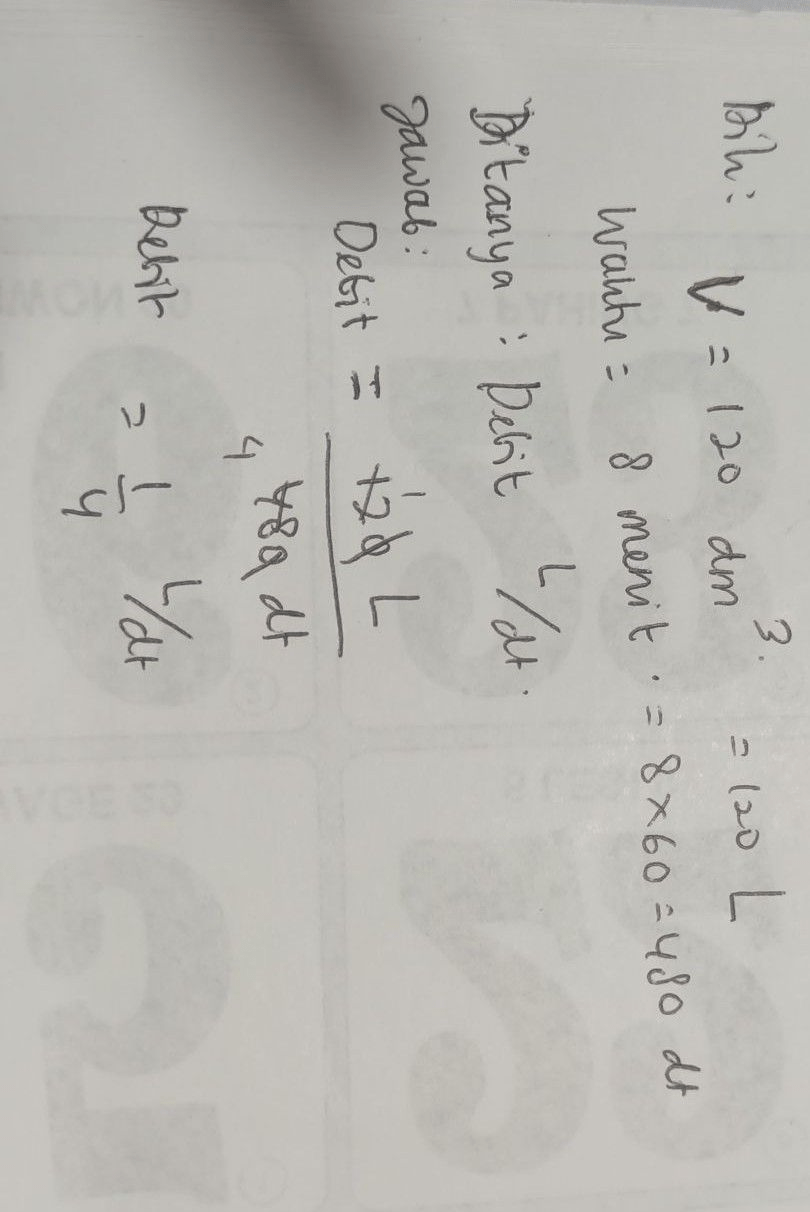 Dik: V = 120 dm³. = 120 L
Waktu = 8 menit. = 8 × 60 = 480 dt
Ditanya: Debit L/dt.
Jawab:
Debit = 1 120 L
4 480 dt
Debit = 1/4 L/dt